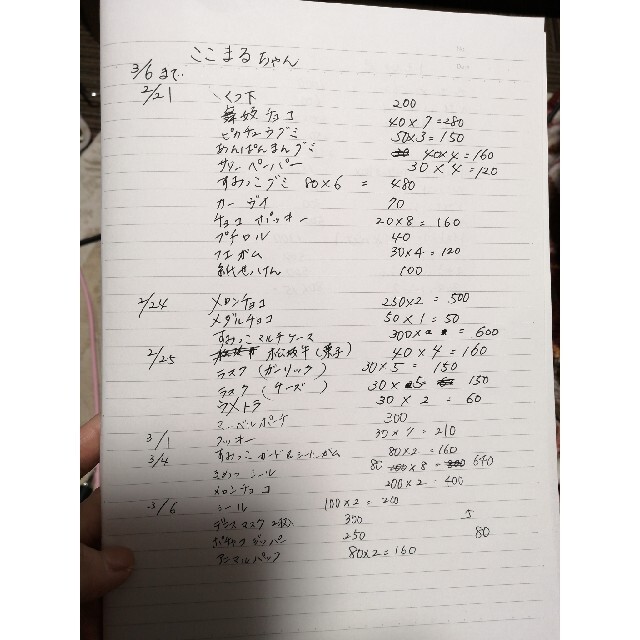 ここまるちゃん
3/6まで
2/21 くつ下 200
舞妓チョコ 40×7=280
ピカチュウグミ 50×3=150
あんぱんまんグミ 40×4=160
ペーパー 30×4=120
すみっこグミ 80×6 = 480
カー 70
チョコ 20×8=160
プチロル 40
フエガム 30×4=120
せっけん 100
2/24 メロンチョコ 250×2=500
メダルチョコ 50×1=50
すみっこマルチケース 300× =600
2/25 松坂牛(菓子) 40×4=160
ラスク(ガーリック) 30×5=150
ラスク(チーズ) 30×5 150
ウメトラ 30×2=60
ポーチ 300
3/1 30×7=210
3/4 すみっこカード&シールガム 80×2=160
シール 80 ×8= 640
メロンチョコ 200×2=400
3/6 シール 100×2=200
マスク2枚 350 5
250 80
アニマルパック 80×2=160